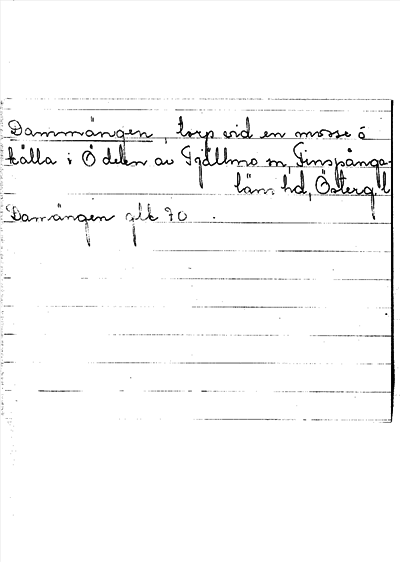 Dammängen, torp vid en mosse o
källa i Ö delen av Tjällmo sn, Finspånga-
läns hd, Östergl
Damängen glk 70